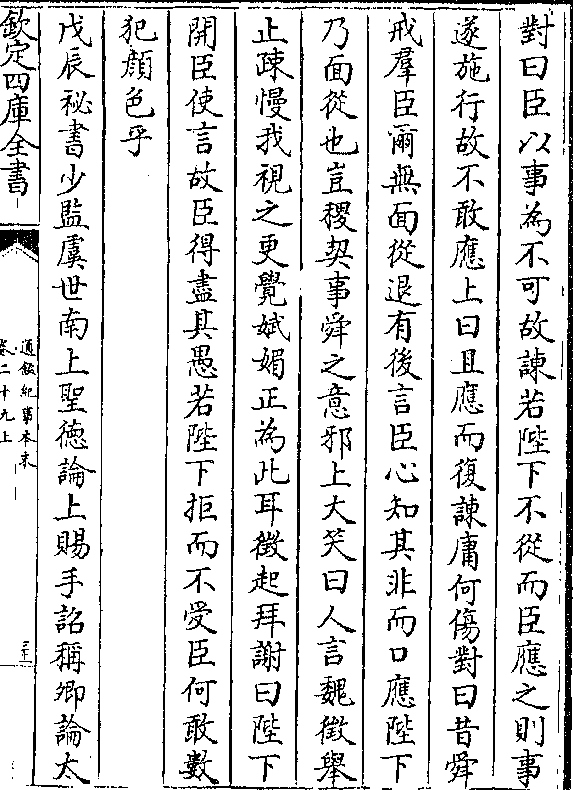 對曰臣以事為不可故諫若陛下不從而臣應之則事
遂施行故不敢應上曰且應而復諫庸何傷對曰昔舜
戒羣臣爾無面從退有後言臣心知其非而口應陛下
乃面從也豈稷契事舜之意邪上大笑曰人言魏徵舉
止疎慢我視之更覺娬媚正為此耳徵起拜謝曰陛下
開臣使言故臣得盡其愚若陛下拒而不受臣何敢數
犯顔色乎
戊辰祕書少監虞世南上聖德論上賜手詔稱卿論太
欽定四庫全書
通鑑紀事本末
卷二十九上